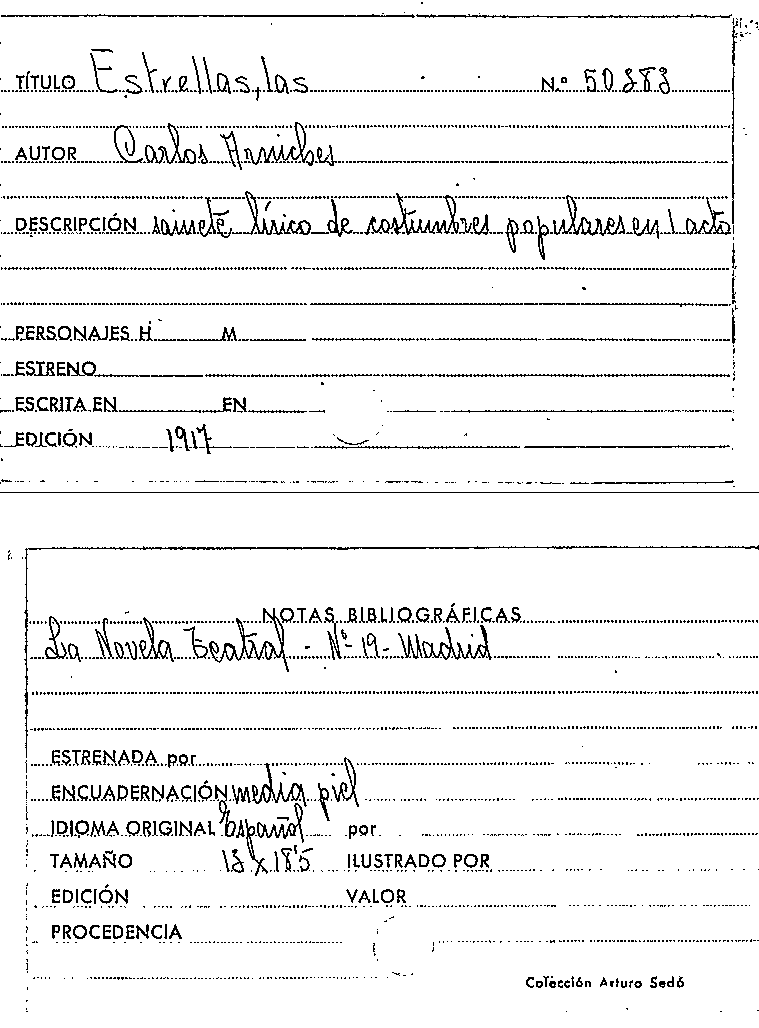 TÍTULO Estrellas, las N.º 50383
AUTOR Carlos Arniches
DESCRIPCIÓN sainete lírico de costumbres populares en 1 acto
PERSONAJES H M
ESTRENO
ESCRITA EN EN
EDICIÓN 1917
NOTAS BIBLIOGRÁFICAS
La Novela Teatral - Nº 19 - Madrid
ESTRENADA por
ENCUADERNACIÓN media piel
IDIOMA ORIGINAL Español por
TAMAÑO 13 x 18'5 ILUSTRADO POR
EDICIÓN VALOR
PROCEDENCIA
Colección Arturo Sedó